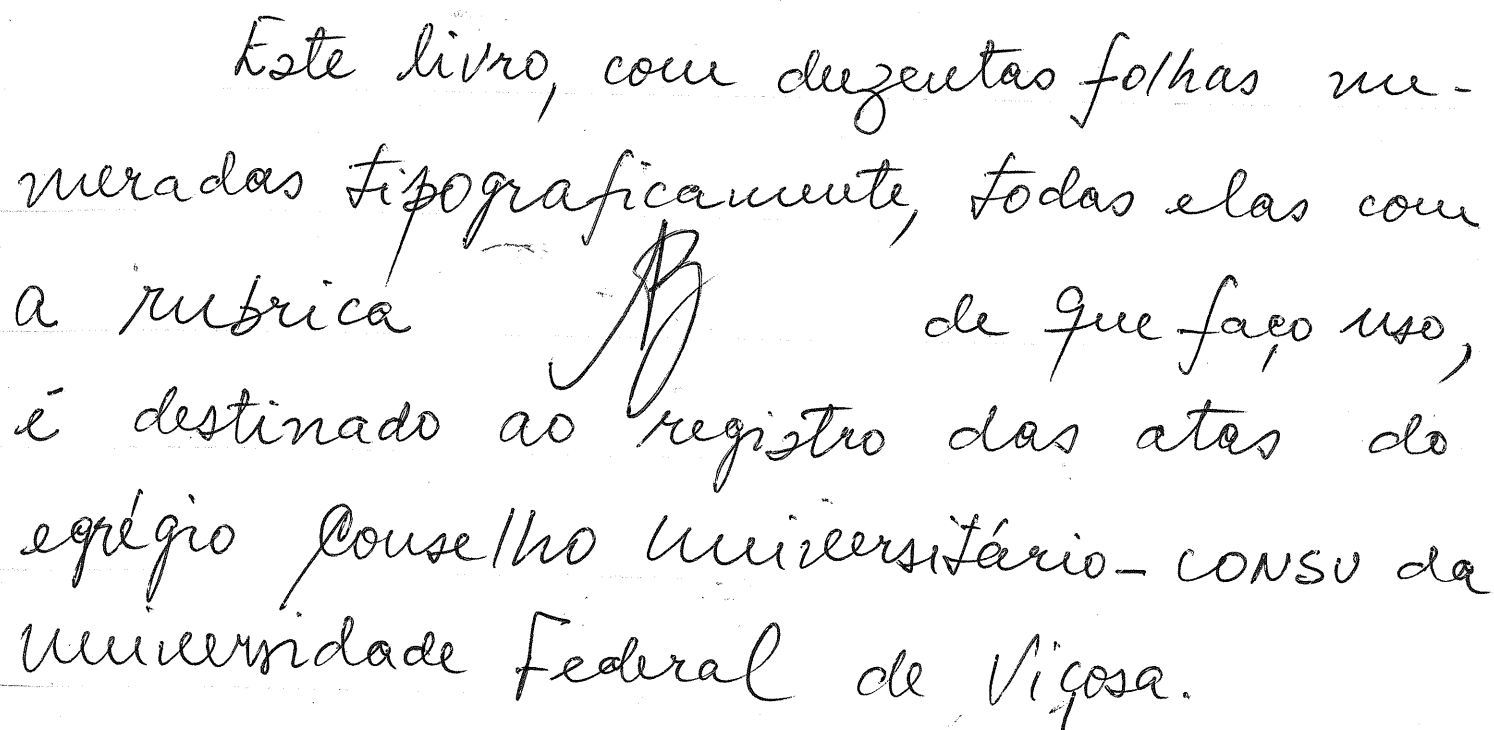 Este livro, com duzentas folhas nu-
meradas tipograficamente, todas elas com
a rubrica de que faço uso,
é destinado ao registro das atas do
egrégio Conselho Universitário - CONSU da
Universidade Federal de Viçosa.